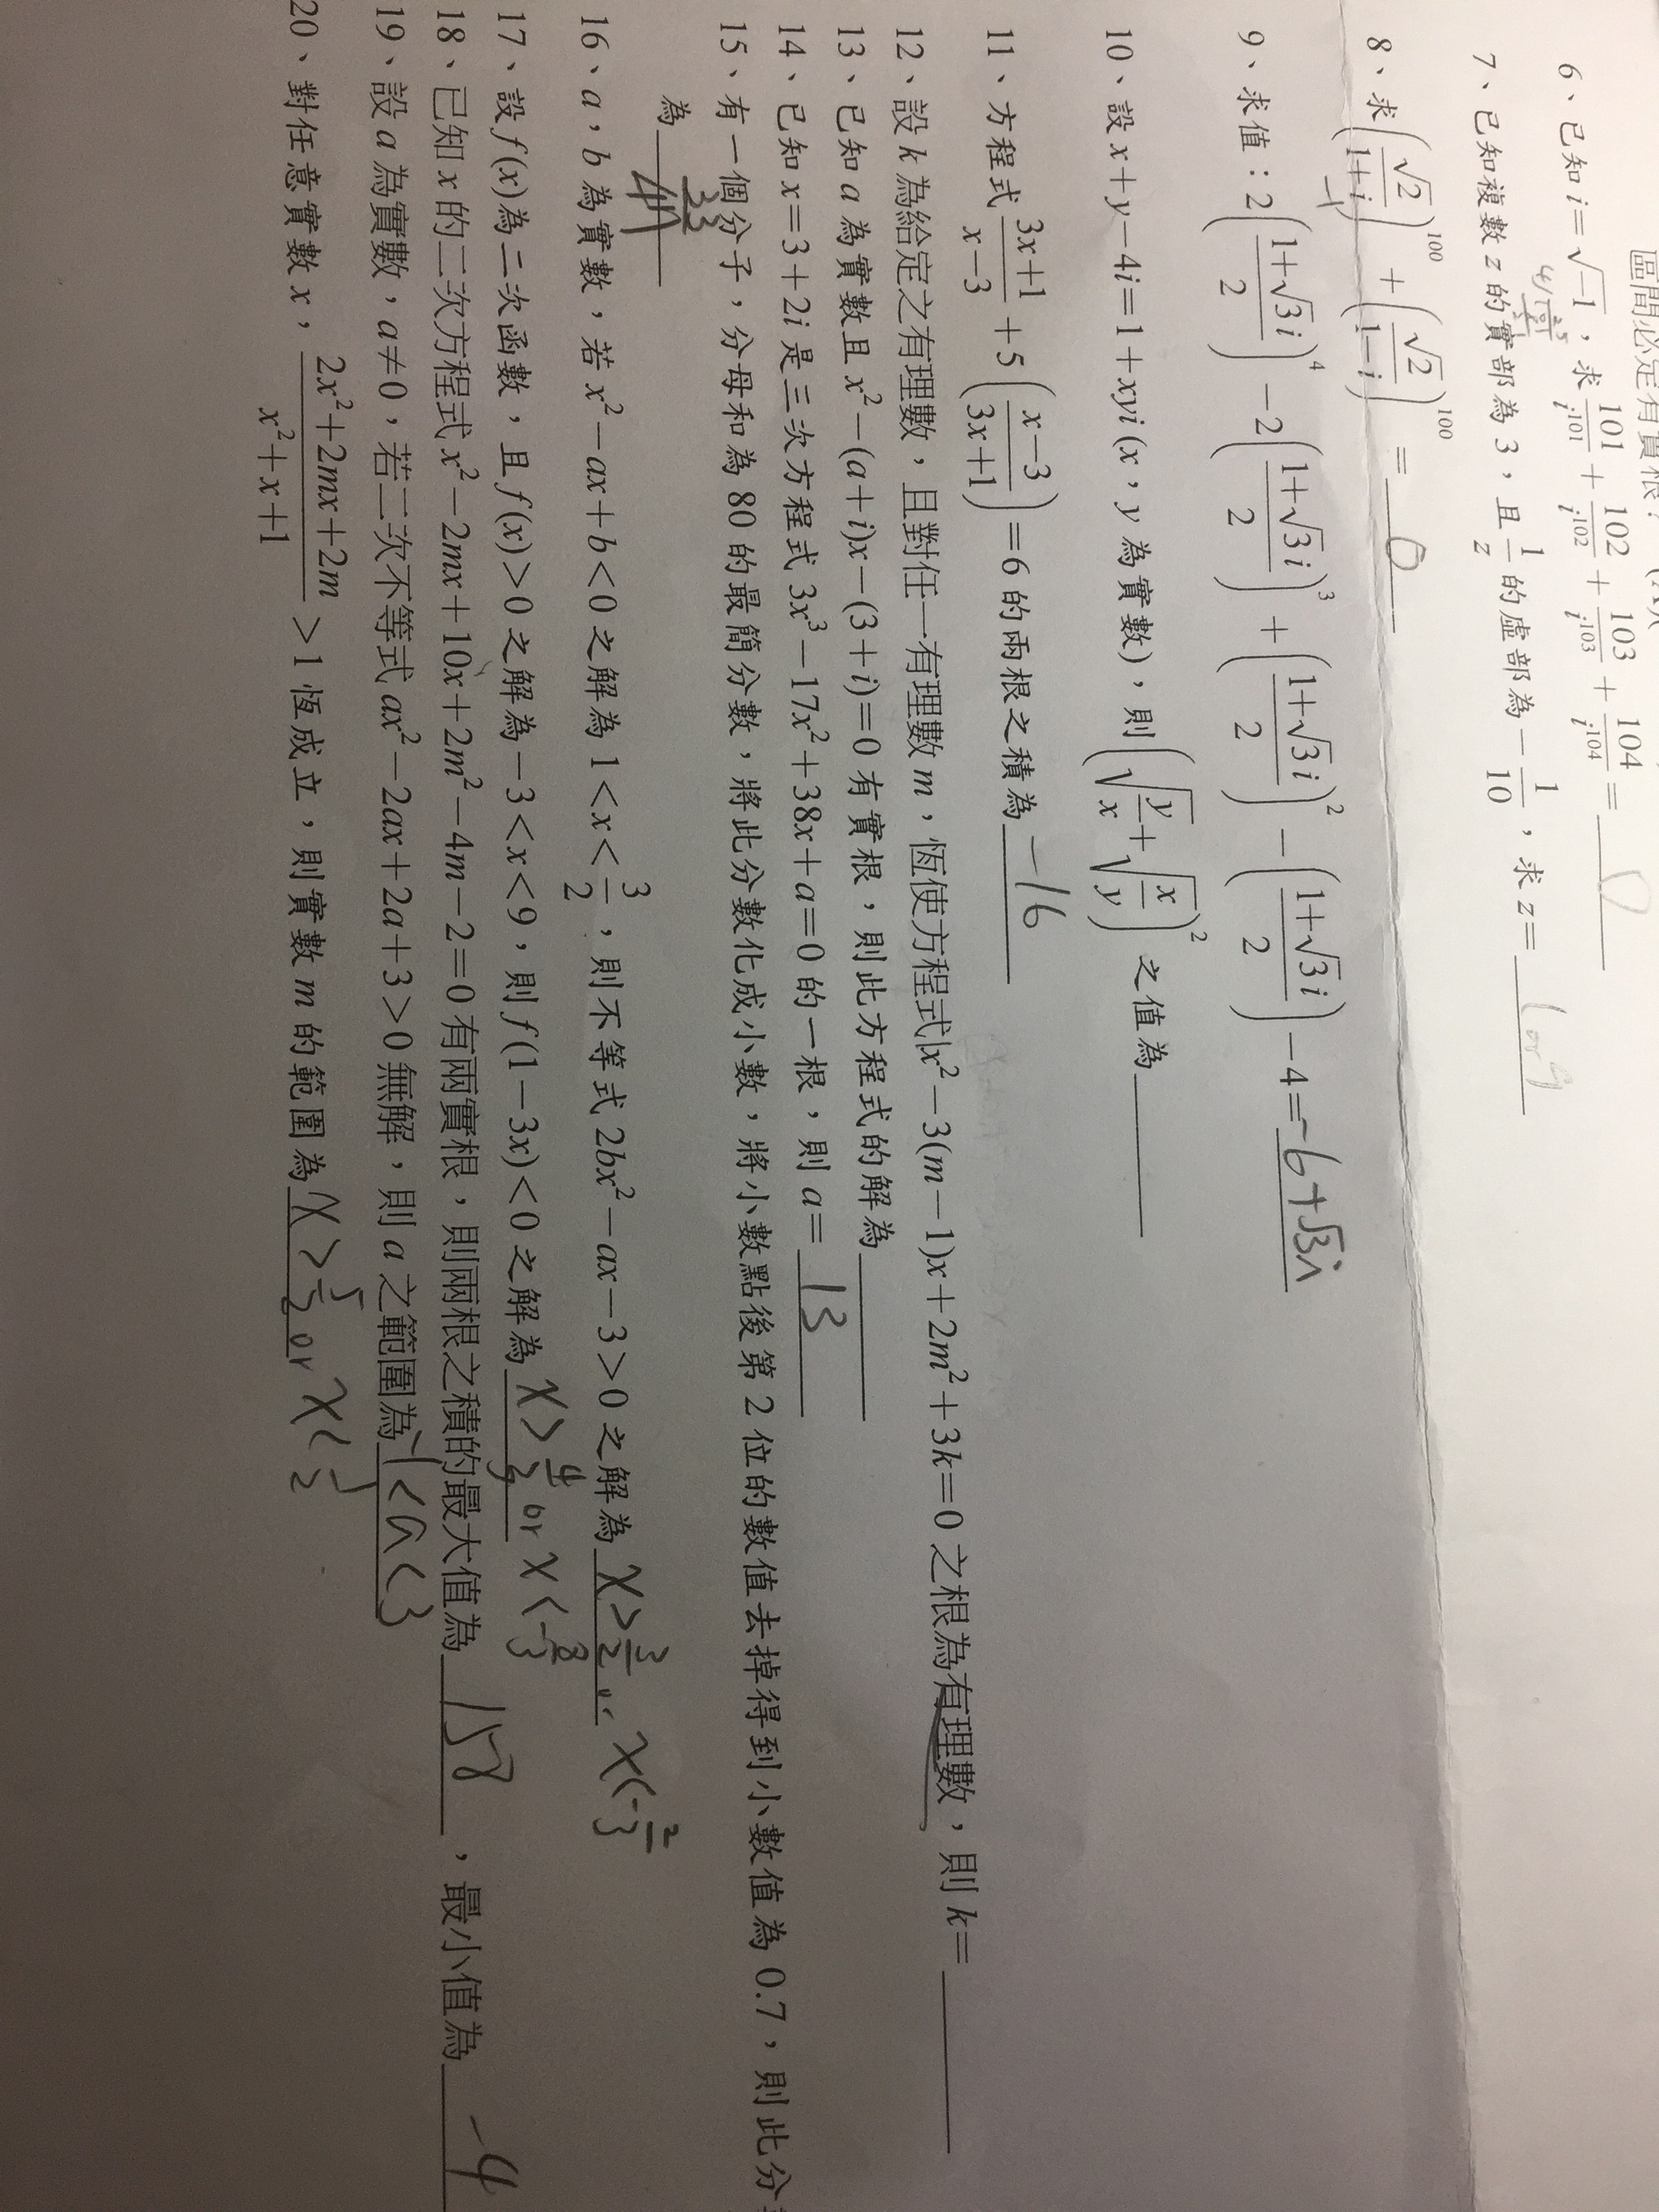 區間必定有實根?
6、已知 i=√-1,求 101/i^101 + 102/i^102 + 103/i^103 + 104/i^104 =
7、已知複數 z 的實部為 3,且 1/z 的虛部為 -1/10,求 z= 1 or 9
8、求 (√2/(1+i))^100 + (√2/(1-i))^100 = 0
-1
9、求值:2((1+√3i)/2)^4 -2((1+√3i)/2)^3 + ((1+√3i)/2)^2 - ((1+√3i)/2) -4= -6+√3i
10、設 x+y-4i=1+xyi (x,y 為實數),則 (√(y/x)+√(x/y))^2 之值為
11、方程式 (3x+1)/(x-3) +5((x-3)/(3x+1)) =6 的兩根之積為 -16
12、設 k 為給定之有理數,且對任一有理數 m,恆使方程式 x²-3(m-1)x+2m²+3k=0 之根為有理數,則 k=
13、已知 a 為實數且 x²-(a+i)x-(3+i)=0 有實根,則此方程式的解為
14、已知 x=3+2i 是三次方程式 3x³-17x²+38x+a=0 的一根,則 a= 13
15、有一個分子,分母和為 80 的最簡分數,將此分數化成小數,將小數點後第 2 位的數值去掉得到小數值為 0.7,則此分
為 33
16、a,b 為實數,若 x²-ax+b<0 之解為 1<x<3/2,則不等式 2bx²-ax-3>0 之解為 x>3/2 or x<-2/3
17、設 f(x)為二次函數,且 f(x)>0 之解為-3<x<9,則 f(1-3x)<0 之解為 x>4/3 or x<-8/3
18、已知 x 的二次方程式 x²-2mx+10x+2m²-4m-2=0 有兩實根,則兩根之積的最大值為 158 ,最小值為 -4
19、設 a 為實數,a≠0,若二次不等式 ax²-2ax+2a+3>0 無解,則 a 之範圍為 -1<a<3
20、對任意實數 x,(2x²+2mx+2m)/(x²+x+1) >1 恆成立,則實數 m 的範圍為 x>5/2 or x<1/2